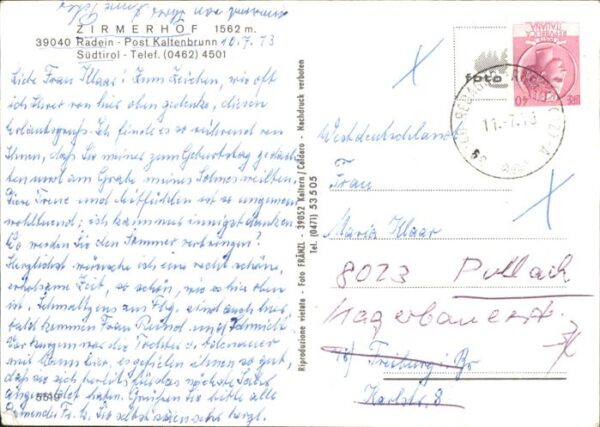 ZIRMERHOF 1562 m.
39040 Radein - Post Kaltenbrunn 10.7.73
Südtirol - Telef. (0462) 4501
Liebe Frau Klaar! Zum Zeichen, wie oft
ich Ihrer von hier oben gedenke, diesen
Ich finde es so rührend von
Ihnen, daß Sie meiner zum Geburtstag gedach-
ten und am Grabe meines Sohnes weilten,
Diese Treue und Mitfühlen ist so ungemein
wohltuend; ich kann nur innigst danken.
Wo werden Sie den Sommer verbringen?
Herzlichst wünsche ich eine recht schöne,
erholsame Zeit, so schön, wie so hier oben
ist. Schmaltzens aus Fbg. sind auch hier,
bald kommen Frau und Schmidt.
Vor war die Tochter v. Adenauer
mit Mann hier, es gefielen ihnen so gut,
daß sie sich bereits für das nächste Jahr
angemeldet haben. Grüßen Sie bitte alle
Sie selbst seien sehr herzl.
5519
Riproduzione vietata - Foto FRÄNZL - 39052 Kaltern / Caldaro - Nachdruck verboten
Tel. (0471) 53505
foto
REPUBBLICA
ITALIANA
40
11.-7.73
Westdeutschland
Frau
Maria Klaar
8023 Pullach
Hagerbauerstr.
78) Freiburg i. Br
Karlstr. 8